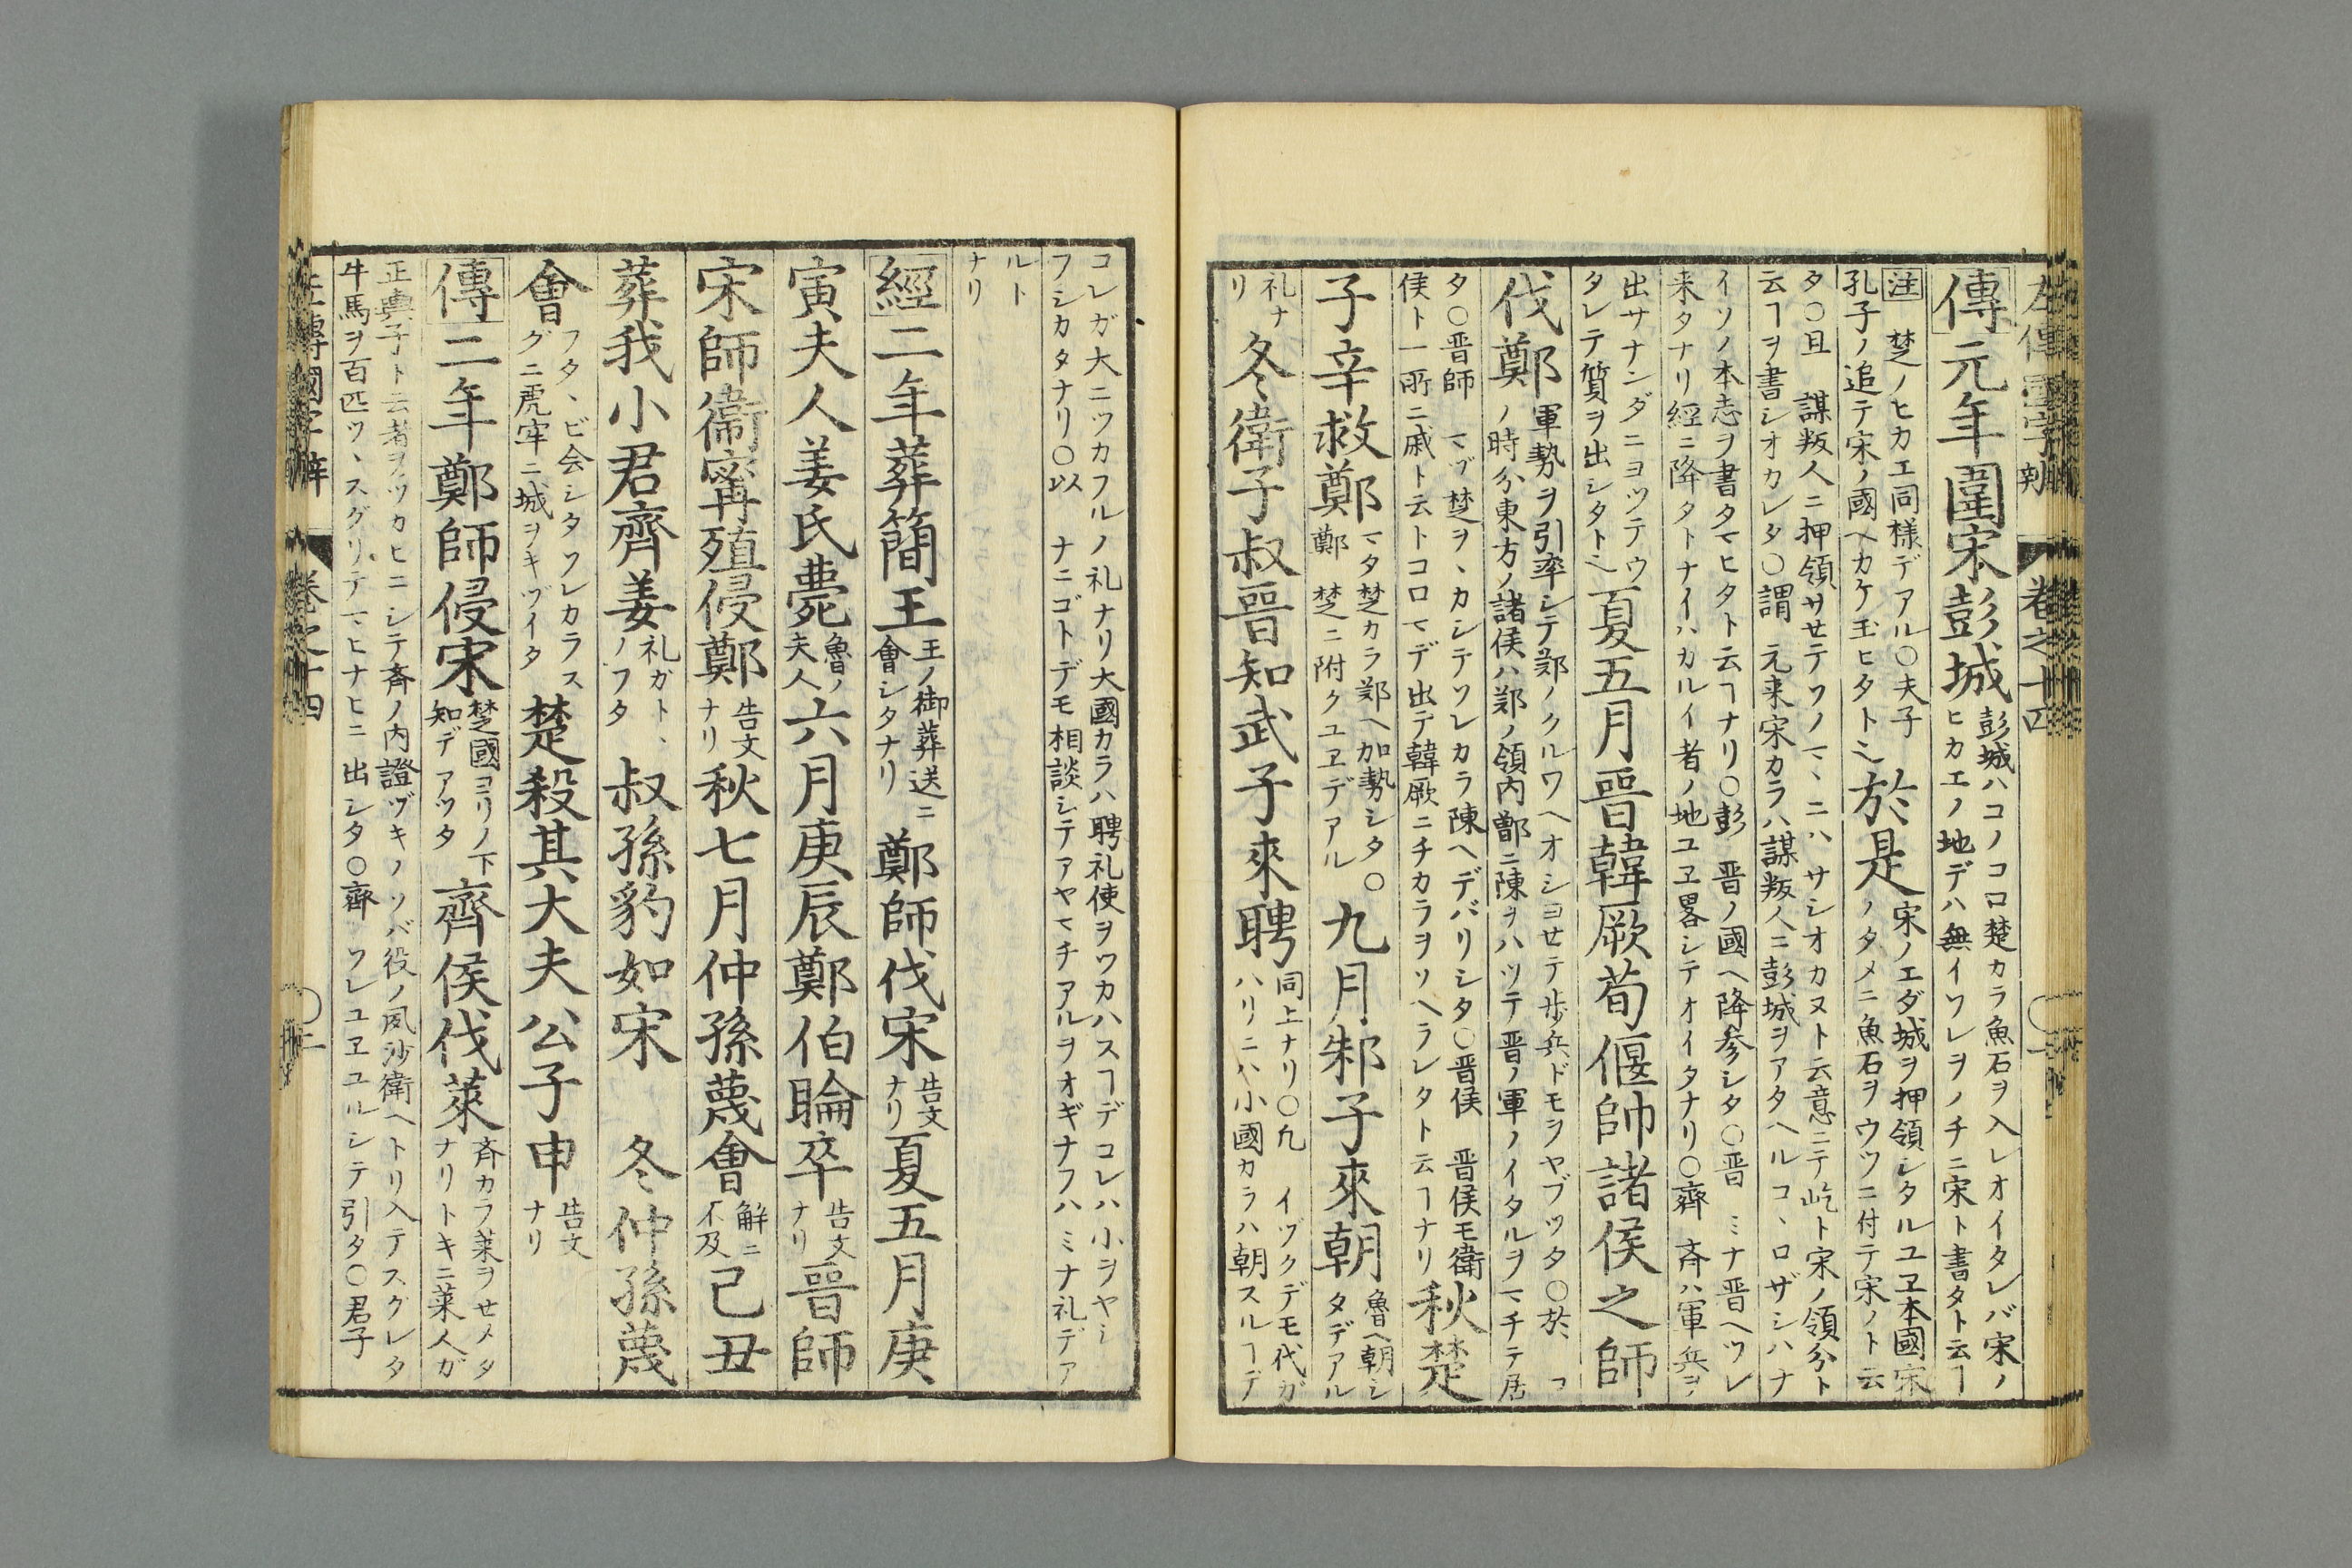 左傳國字解 卷之十四
傳元年圍宋彭城 彭城ハコノコロ楚カラ魚石ヲ入レオイタレバ宋ノ
ヒカエノ地デハ無イソレヲノチニ宋ト書タト云ヿ
注 楚ノヒカエ同様デアル〇夫子
孔子ノ追テ宋ノ國ヘカケ玉ヒタト乄
於是 宋ノエダ城ヲ押領シタルユヱ本國宋
ノタメニ魚石ヲウツニ付テ宋ノト云
タ〇且 謀叛人ニ押領サセテソノマヽニハサシオカヌト云意ニテ屹ト宋ノ領分ト
云ヿヲ書シオカレタ〇謂 元来宋カラハ謀叛ノ人ニ彭城ヲアタヘルコヽロザシハナ
イソノ本志ヲ書タマヒタト云ヿナリ〇彭 晋ノ國ヘ降参シタ〇晋 ミナ晋ヘツレ
来タナリ經ニ降タトナイハカルイ者ノ地ユヱ畧シテオイタナリ〇齊 斉ハ軍兵ヲ
出サナンダニヨツテウ
タレテ質ヲ出シタト乄
夏五月晉韓厥荀偃帥諸侯之師
伐鄭 軍勢ヲ引率シテ鄭ノクルワヘオシヨセテ歩兵ドモヲヤブツタ〇於 コ
ノ時分東方ノ諸侯ハ鄭ノ領内鄫ニ陳ヲハツテ晋ノ軍ノイタルヲマチテ居
タ〇晋師 マヅ楚ヲヽカシテソレカラ陳ヘデバリシタ〇晋侯 晋侯モ衛
侯ト一所ニ戚ト云トコロマデ出テ韓厥ニチカラヲソヘラレタト云ヿナリ
秋楚
子辛救鄭 マタ楚カラ鄭ヘ加勢シタ〇
鄭 楚ニ附クユヱデアル
九月邾子來朝 魯ヘ朝シ
タデアル
礼ナ
リ
冬衛子叔晉知武子來聘 同上ナリ〇九 イヅクデモ代ガ
ハリニハ小國カラハ朝スルヿデ
コレガ大ニツカフルノ礼ナリ大國カラハ聘礼使ヲツカハスヿデコレハ小ヲヤシ
フシカタナリ〇以 ナニゴトデモ相談シテアヤマチアルヲオギナフハミナ礼デア
ルト
ナリ
經二年葬簡王 王ノ御葬送ニ
會シタナリ
鄭師伐宋 告文
ナリ
夏五月庚
寅夫人姜氏薨 魯ノ
夫人
六月庚辰鄭伯睔卒 告文
ナリ
晉師
宋師衞甯殖侵鄭 告文
ナリ
秋七月仲孫蔑會 解ニ
不及
己丑
葬我小君齊姜 礼ガトヽ
ノフタ
叔孫豹如宋 冬仲孫蔑
會 フタヽビ会シタワレカラス
グニ虎牢ニ城ヲキヅイタ
楚殺其大夫公子申 告文
ナリ
傳二年鄭師侵宋 楚國ヨリノ下
知デアツタ
齊侯伐萊 斉カラ莱ヲせメタ
ナリトキニ莱人ガ
正輿子ト云者ヲツカヒニシテ斉ノ内證ヅキノソバ役ノ夙沙衛ヘトリ入テスグレタ
牛馬ヲ百匹ツヽスグリテマヒナヒニ出シタ〇齊 ソレユヱユルシテ引タ〇君子
左傳國字解 卷之十四 〇二